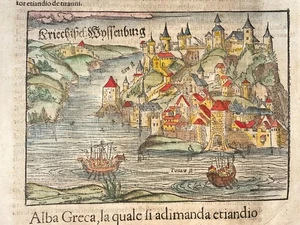 tor etiandio de tiranni.
Kriechisch Wyssenburg
Alba Greca, la quale si adimanda etiandio